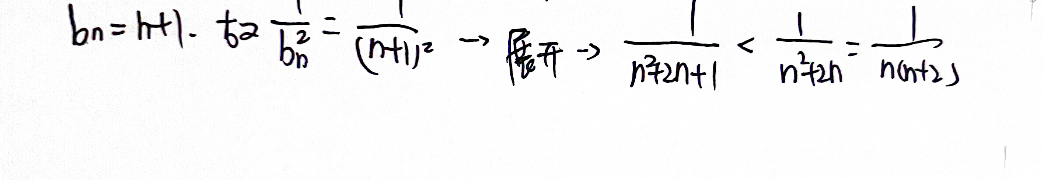 bn = n+1. 故 1/bn² = 1/(n+1)² → 展开 → 1/(n²+2n+1) < 1/(n²+2n) = 1/(n(n+2))